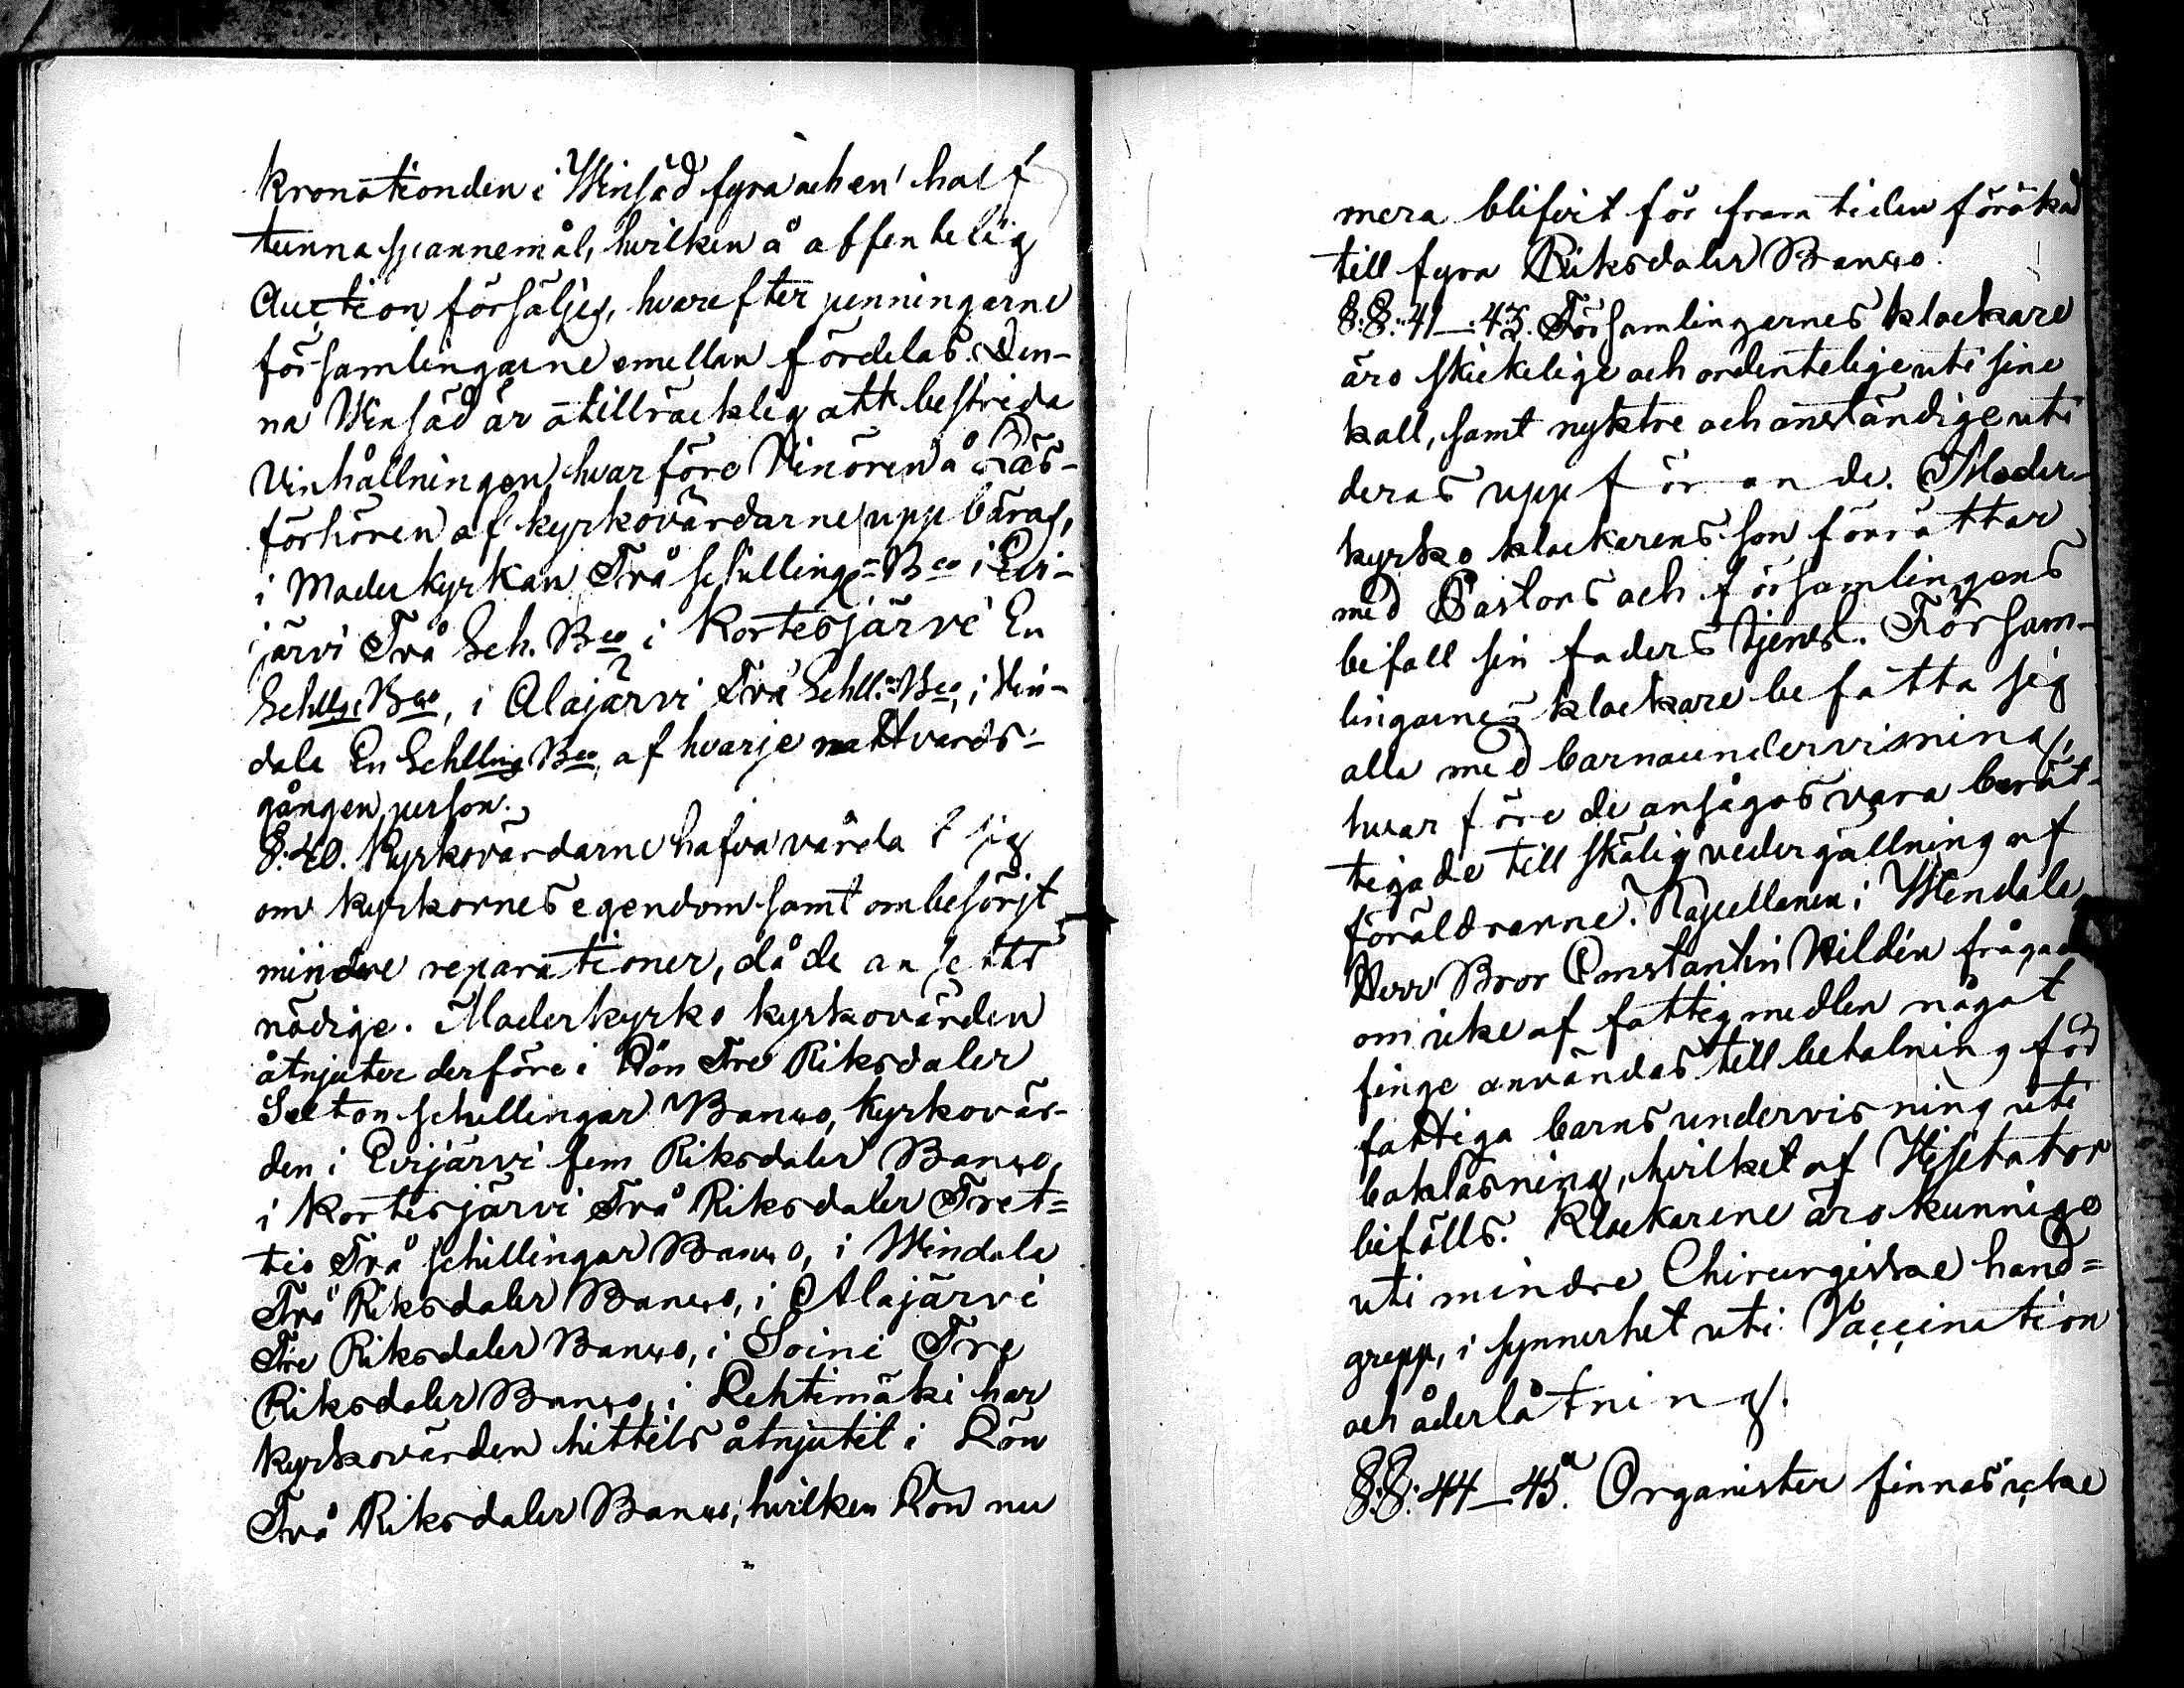 kronotionden i Winsäd fyra och en half
tunna spannemål, hvilken å offentelig
Auction försäljes, hvarefter penningarne
församlingarne emellan fördelas. Den-
na Winsäd är otillräcklig att bestrida
Vinhållningen, hvarföre Vinören å Läs-
förhören af kyrkovärdarne uppbäras,
i Moderkyrkan Två schillings Bco i Evi-
järvi Två Sch. Bco i Kortesjärvi En
Schllgs Bco, i Alajärvi Två Schll. Bco, i Vin-
dala En Schlling Bco, af hvarje nattvards-
gången person.
§. 40. Kyrkovärdarne hafva vårda t sig
om kyrkornes egendom samt ombesörjt
mindre reparationer, då de ansetts
nödige. Moderkyrko kyrkovärden
åtnjuter derföre i Lön Tre Riksdaler
Sexton schillingar Banco, Kyrkovär-
den i Evijärvi fem Riksdaler Banco,
i Kortesjärvi Två Riksdaler Tret=
tio Två schillingar Banco, i Windala
Två Riksdaler Banco, i Alajärvi
Tre Riksdaler Banco, i Soini Tre
Riksdaler Banco, i Lehtimäki har
kyrkovärden hittils åtnjutit i Lön
Två Riksdaler Banco, hvilken Lön nu
mera blifvit för fram tiden förökad
till fyra Riksdaler Banco.
§.§. 41–43. Församlingernes klockare
äro skickelige och ordentelige uti sine
kall, samt nyktre och anständige uti
deras uppförande. Moder-
kyrko klockarens son förrättar
med Pastors och församlingens
bifall sin faders tjenst. Försam-
lingarnes klockare befatta sig
alla med barnaundervisning,
hvarföre de ansågos vara berät-
tigade till skälig vedergällning af
föräldrarne. Kapellanen i Windala
Herr Bror Constantin Hildén frågade
om icke af fattigmedlen något
finge användas till betalning för
fattiga barns undervisning uti
bokläsning, hvilket af Visitator
bifölls. Klockarene äro kunnige
uti mindre Chirurgiske hand=
grepp, i synnerhet uti Vaccination
och åderlåtning.
§.§. 44–45. Organister finnas icke